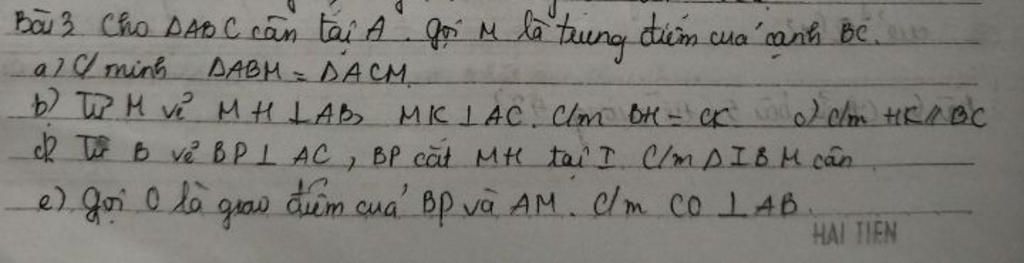 Bài 3 Cho ΔABC cân tại A. gọi M là trung điểm của cạnh BC.
a) C/minh ΔABM = ΔACM
b) Từ M vẽ MH ⊥ AB, MK ⊥ AC. C/m BH = CK c) c/m HK // BC
d) Từ B vẽ BP ⊥ AC, BP cắt MH tại I C/m Δ IBM cân
e) gọi O là giao điểm của BP và AM. C/m CO ⊥ AB
HAI TIEN